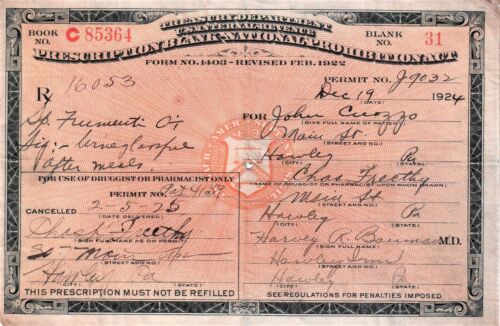 TREASURY DEPARTMENT
U.S. INTERNAL REVENUE
BOOK NO. C 85364
BLANK NO. 31
PRESCRIPTION BLANK - NATIONAL PROHIBITION ACT
FORM NO. 1403 - REVISED FEB. 1922
PERMIT NO. J9032
℞ 16053
Dec 19 1924
(DATE)
Sp. Frumenti
FOR John Cuozzo
(GIVE FULL NAME OF PATIENT)
Sig:-
Main St.
(STREET AND NO.)
after meals
Hawley Pa
(STATE)
FOR USE OF DRUGGIST OR PHARMACIST ONLY
Chas Treethy
(NAME OF DRUGGIST OR PHARMACIST UPON WHOM DRAWN)
PERMIT NO.
Main St
(STREET AND NO.)
CANCELLED 2-5-25
(DATE DELIVERED)
Hawley Pa
(STATE)
Chas Treethy
(SIGN FULL NAME AS ON PERMIT)
Harvey R. Bauman M.D.
(SIGN FULL NAME)
Main
(STREET AND NO.)
(STREET AND NO.)
Hawley Pa
(STATE)
Hawley Pa
(STATE)
THIS PRESCRIPTION MUST NOT BE REFILLED
SEE REGULATIONS FOR PENALTIES IMPOSED